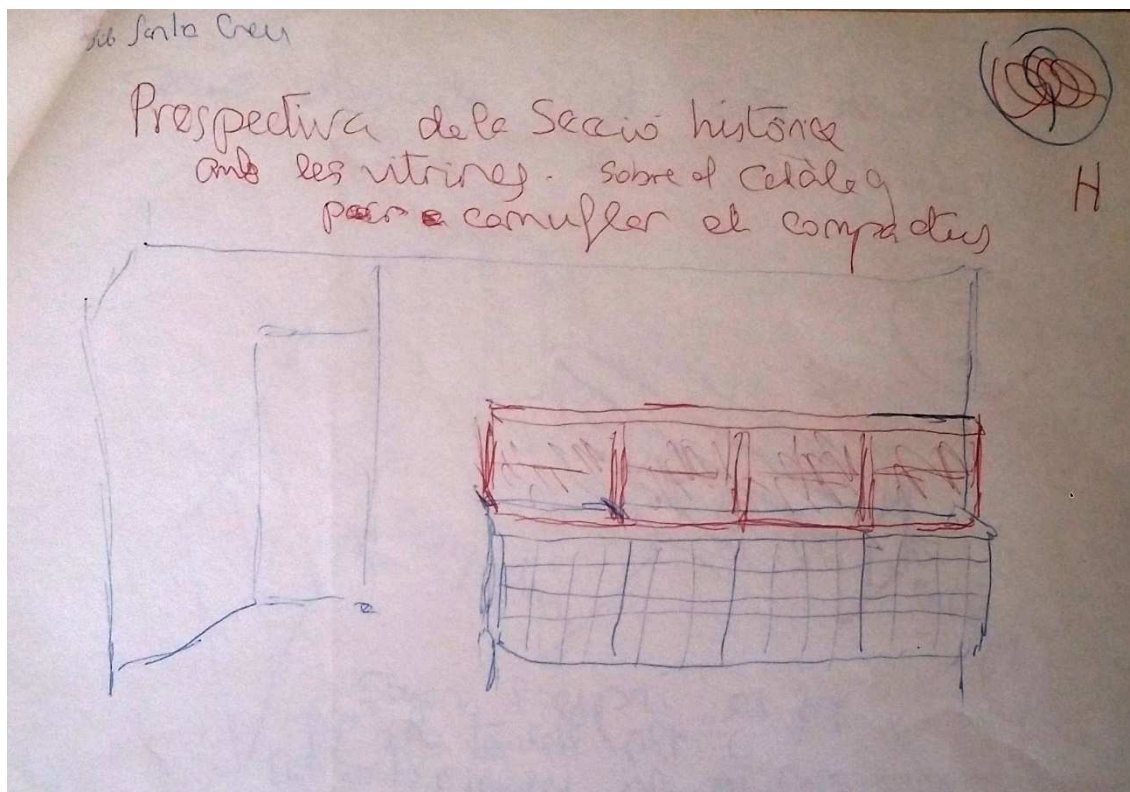 Bib Santa Creu
Prespectiva de la Secció històrica
amb les vitrines. sobre el Catàleg
per a camuflar el compactus
H